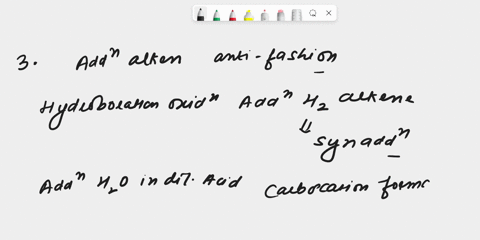 3. Addⁿ alken anti-fashion
Hydroboration oxidⁿ Addⁿ H₂ alkene
⇓
synaddⁿ
Addⁿ H₂O in dil. Acid Carbocation forma